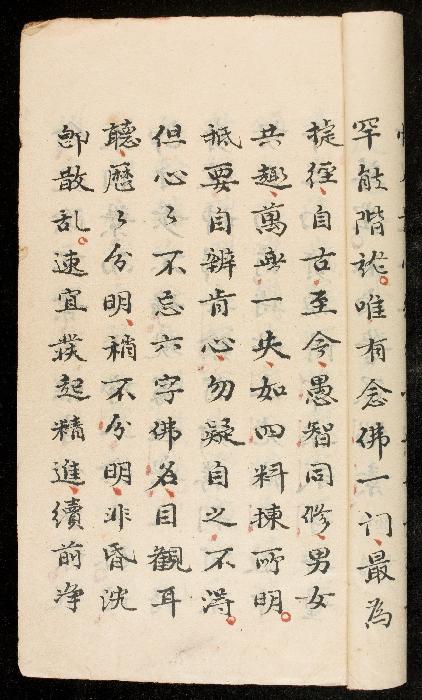 罕能階詣。唯有念佛一门、最為
捷徑、自古至今、愚智同修、男女
共趣、萬無一失、如四料揀所明。
祗要自辨肯心、勿疑自之、不得。
但心々不忘六字佛名、目觀耳
聽、歷々分明、稍不分明、非昏沈
即散乱。速宜撲起精進、續前净